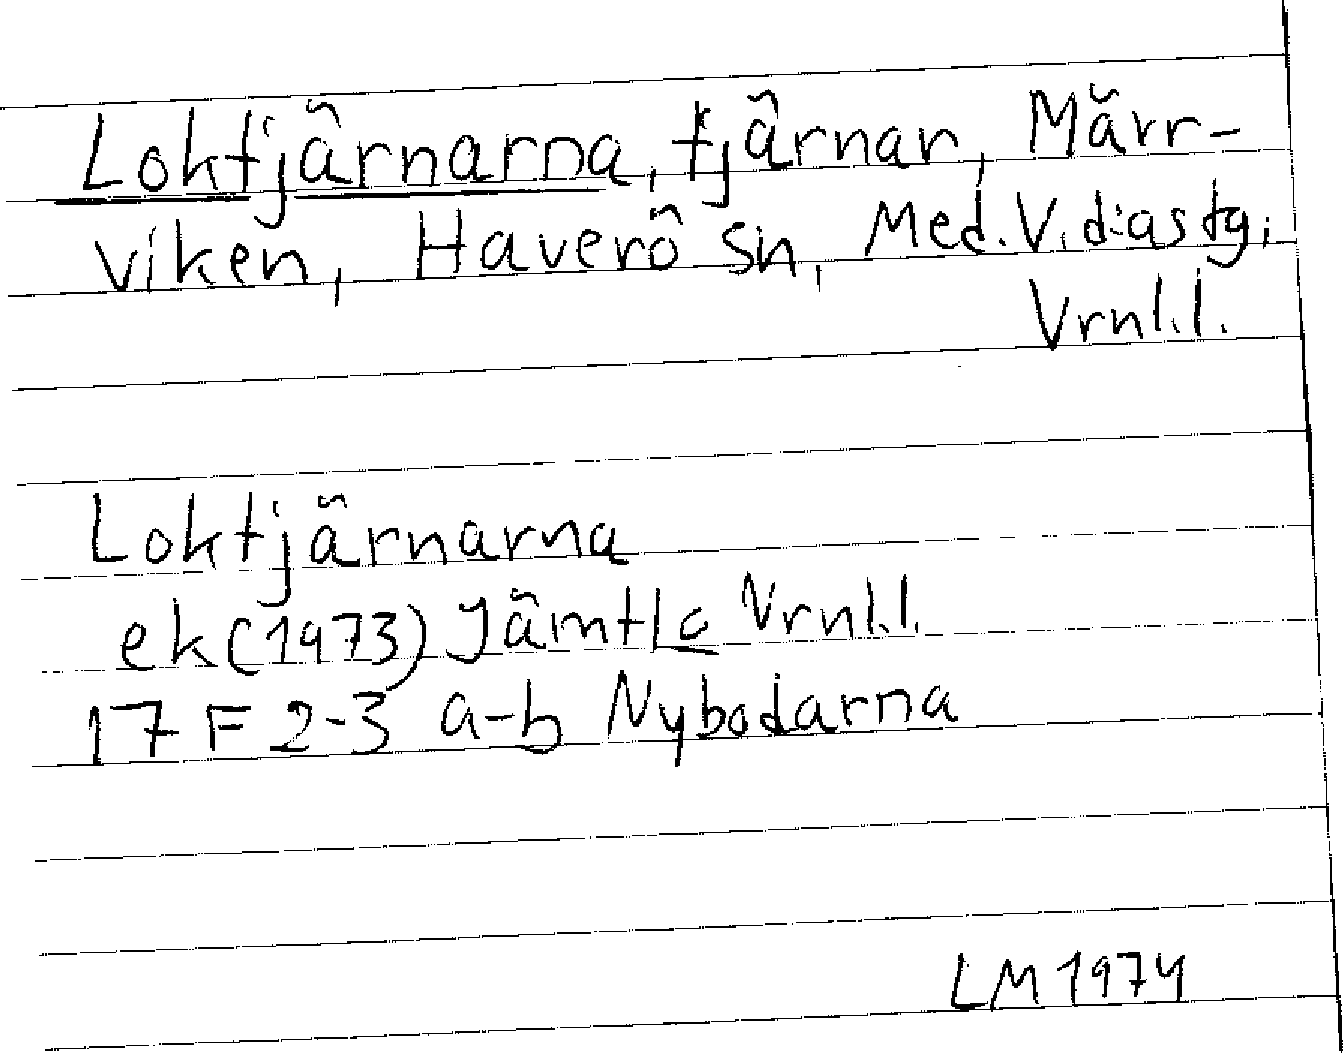 Loktjärnarna, tjärnar, Märr-
viken, Haverö sn, Med. V. d:astg:
Vrnl.l.
Loktjärnarna
ek (1973) Jämtl c Vrnl.l.
17 F 2-3 a-b Nybodarna
LM 1974